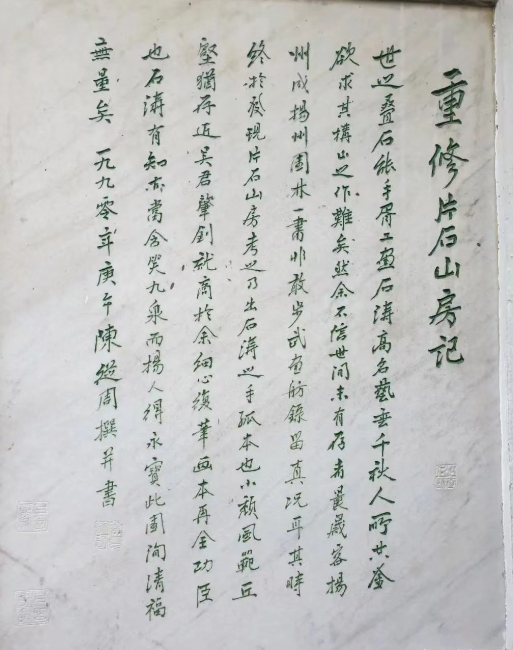 重修片石山房記
世之叠石能手胥工画石濤高名藝垂千秋人所共鉴
欲求其搆山之作難矣然余不信世间未有存者曩歲客揚
州成揚州園林一書非敢步武画舫錄留真况耳其時
終於發現片石山房考之乃出石濤之手孤本也小頹風範丘
壑猶存近吴君肇釗就商於余细心復筆画本再全功臣
也石濤有知亦當含笑九泉而揚人得永寶此園洵清福
無量矣 一九九零年庚午陳從周撰并書